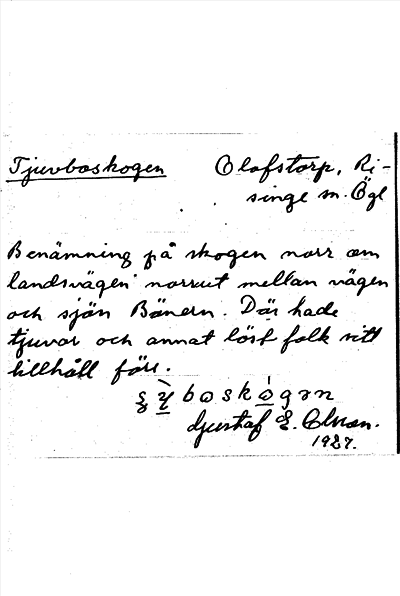 Tjuvboskogen Olofstorp, Ri-
singe sn. Ögl
Benämning på skogen norr om
landsvägen norrut mellan vägen
och sjön Bönern. Där hade
tjuvar och annat löst folk sitt
tillhåll förr.
boskogən
Gustaf E. Olsson.
1927.